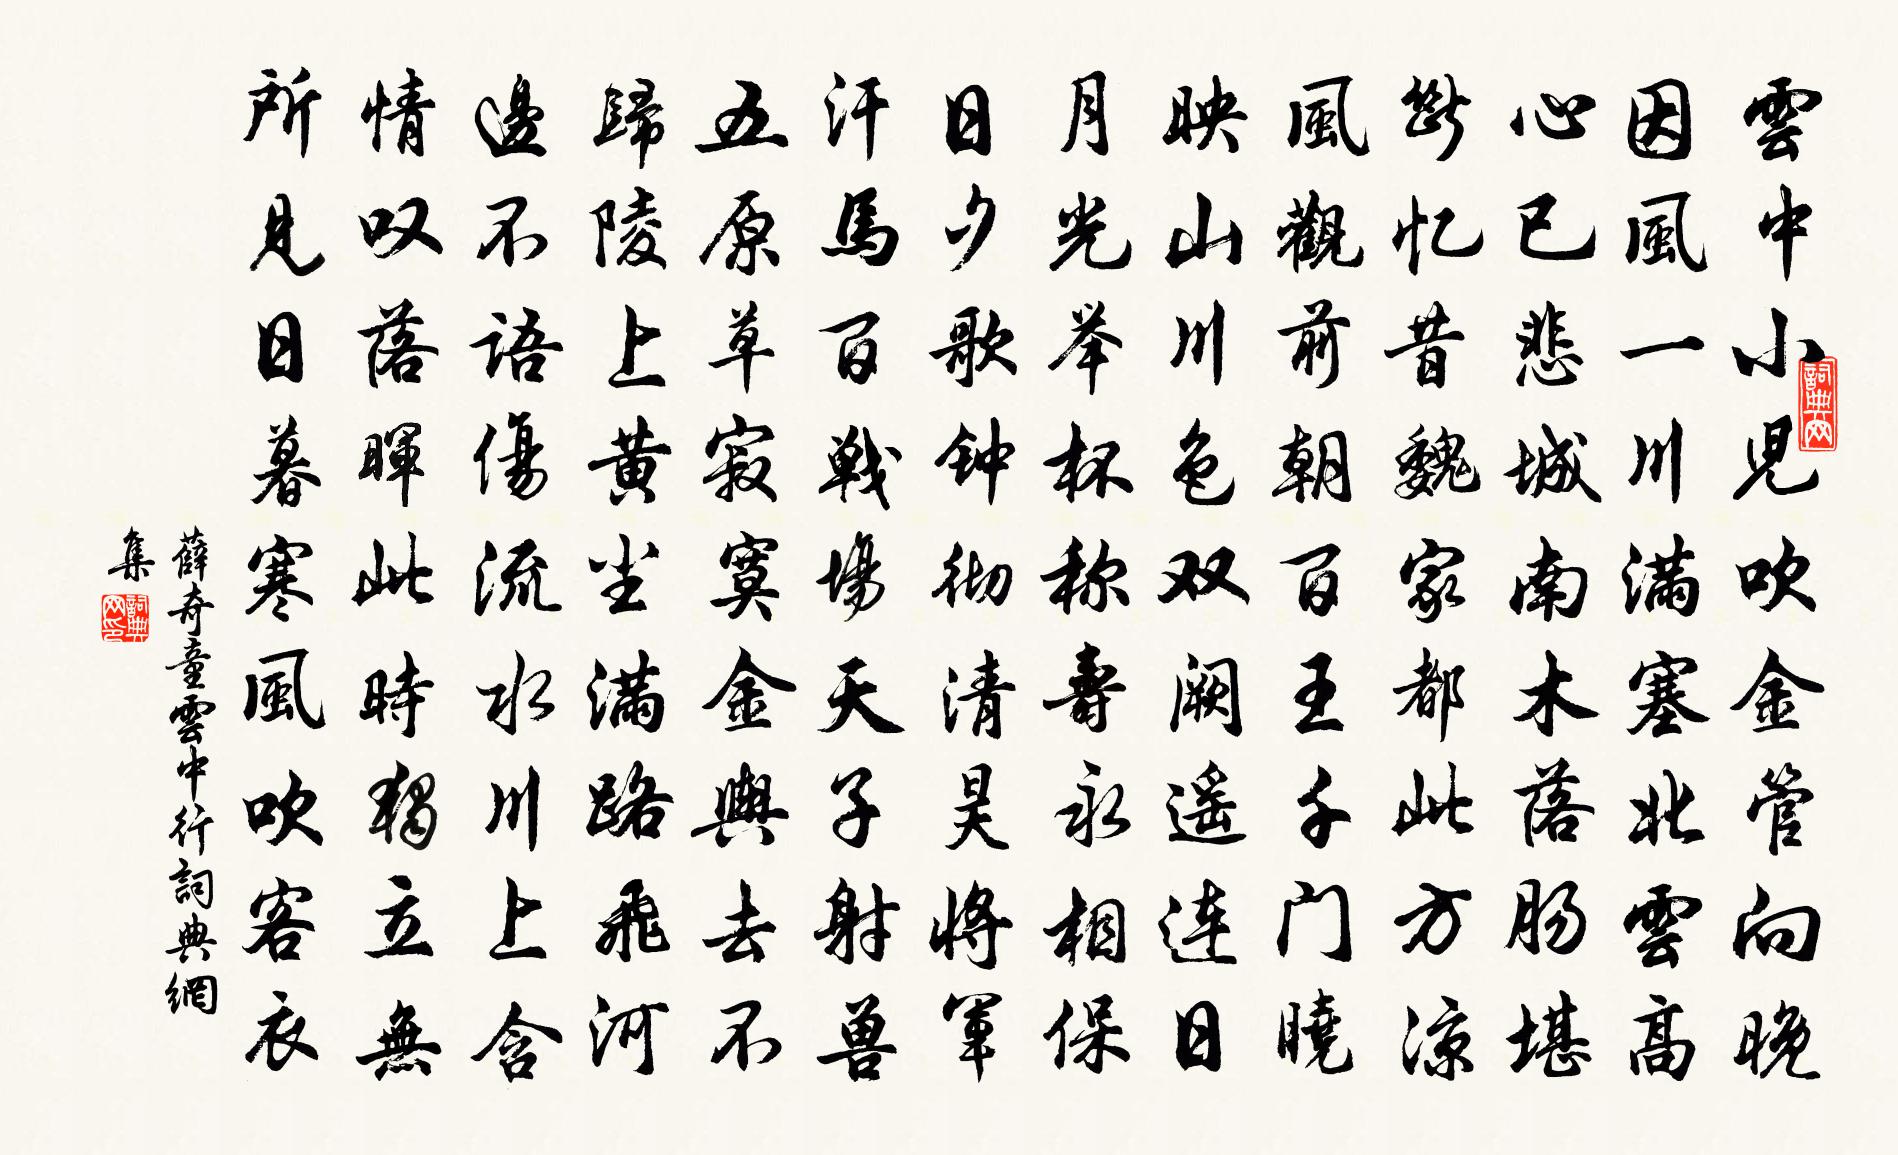 雲中小児吹金管向晚
因風一川满塞北雲高
心已悲城南木落肠堪
斷忆昔魏家都此方凉
風觀前朝百王千门曉
映山川色双阙遥连日
月光举杯称壽永相保
日夕歌钟彻清昊将軍
汗馬百戦場天子射兽
五原草寂寞金輿去不
歸陵上黄尘满路飛河
邊不語傷流水川上含
情叹落暉此時獨立無
所見日暮寒風吹客衣
薛奇童雲中行詞典網
集
詞典网
詞典网印